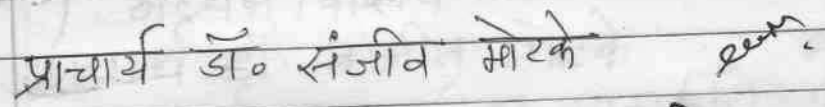 प्राचार्य डॉ० संजीव मोटके